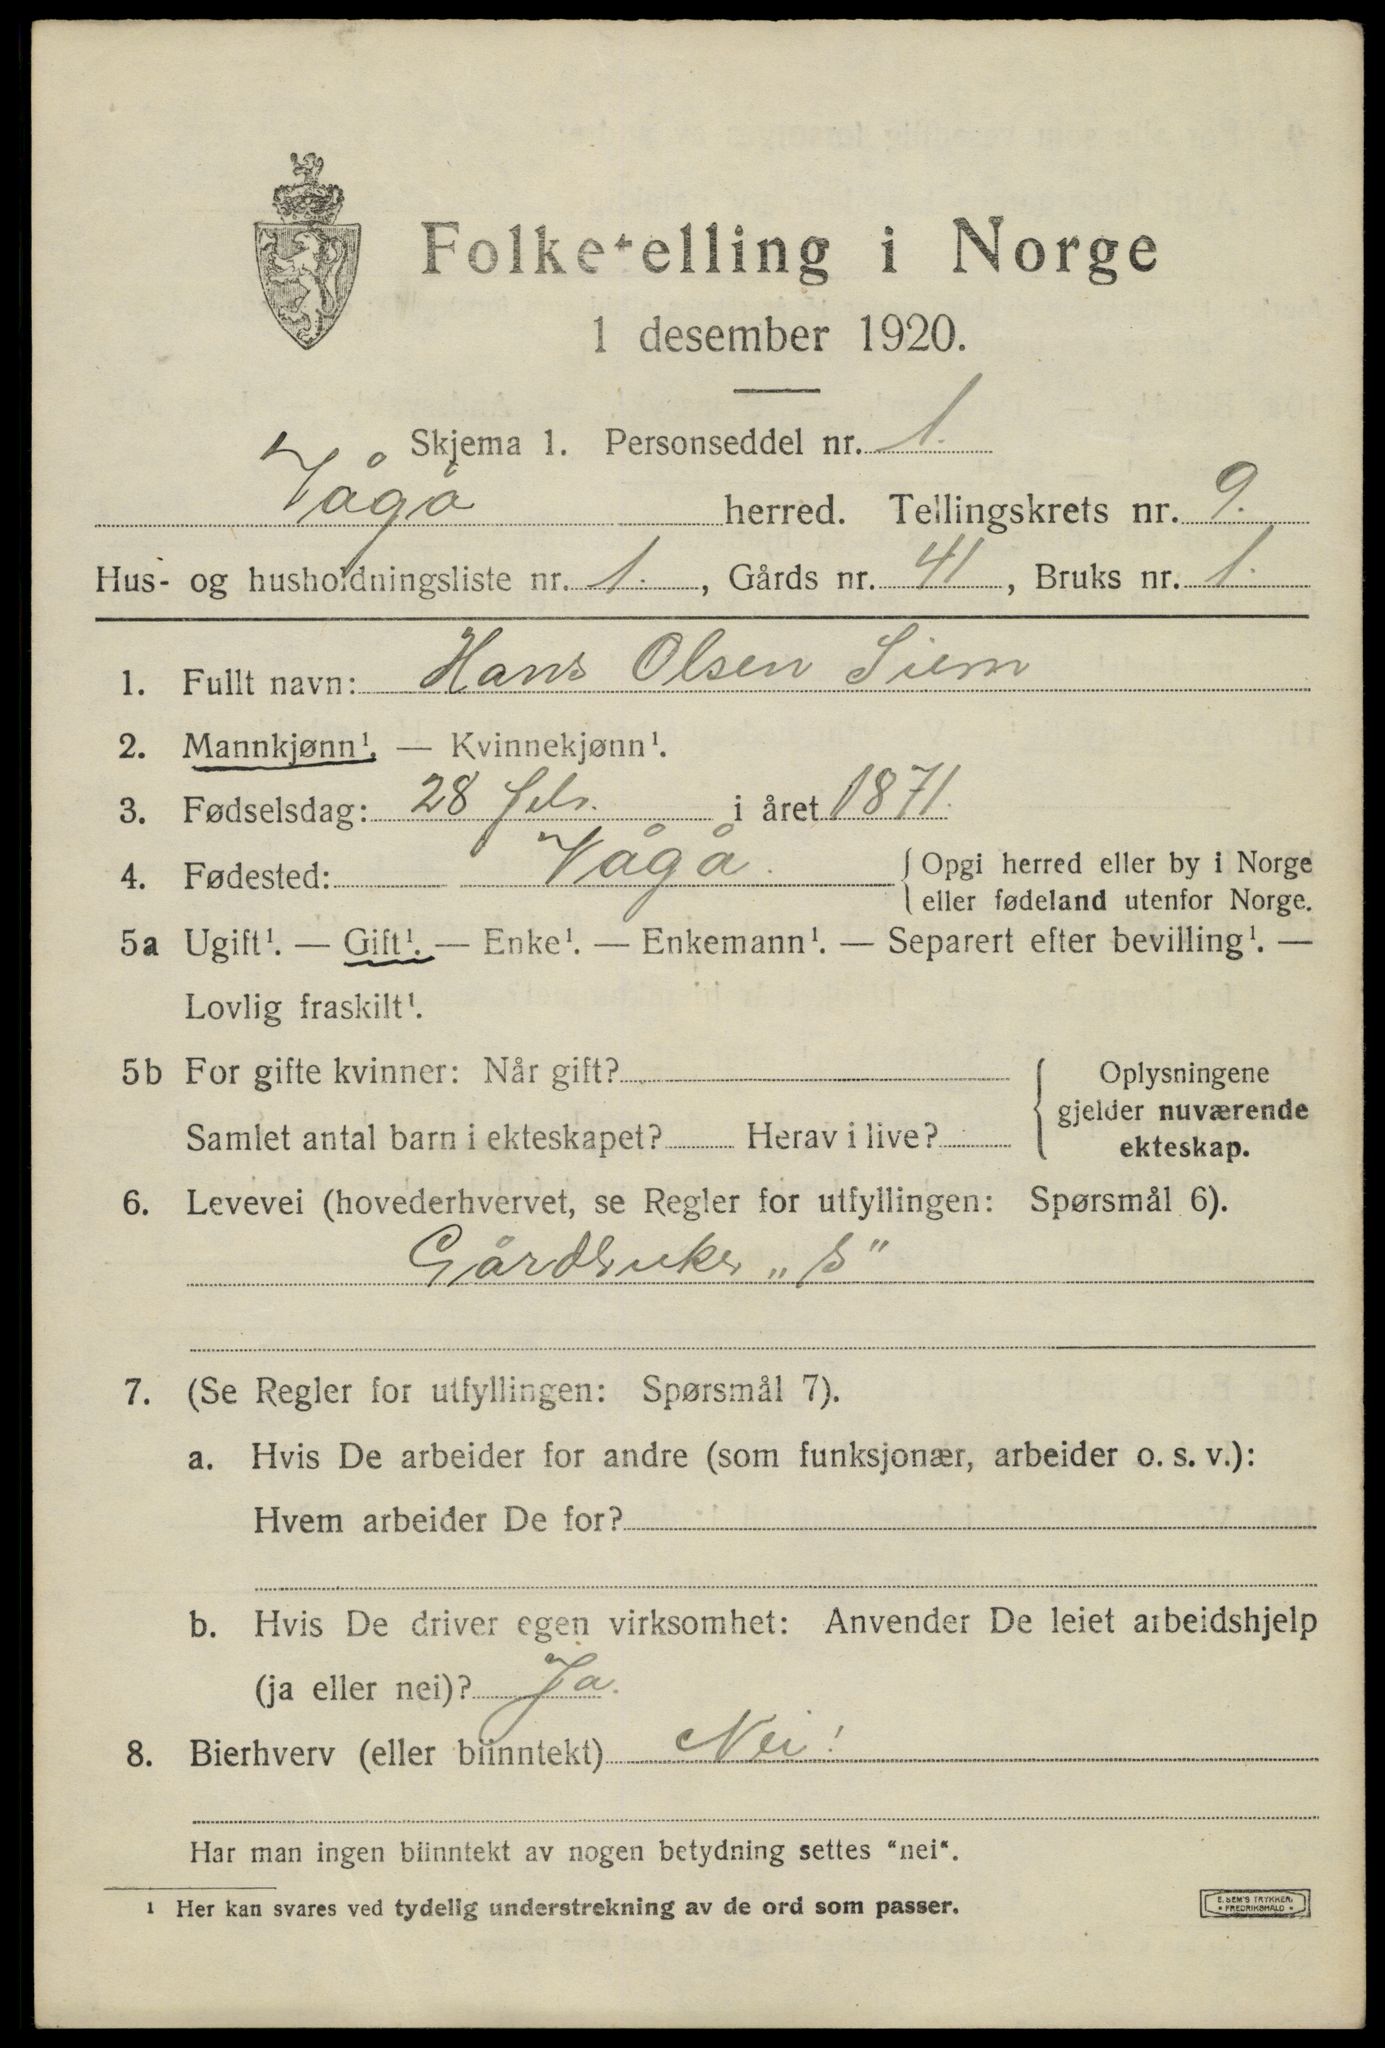 Folketelling i Norge
1 desember 1920.
Skjema 1. Personseddel nr. 1.
Vågå herred. Tellingskrets nr. 9.
Hus- og husholdningsliste nr. 1., Gårds nr. 41, Bruks nr. 1.
1. Fullt navn: Hans Olsen Siem
2. Mannkjønn¹. — Kvinnekjønn¹.
3. Fødselsdag: 28 feb. i året 1871.
4. Fødested: Vågå. { Opgi herred eller by i Norge
eller fødeland utenfor Norge.
5a Ugift¹. — Gift¹. — Enke¹. — Enkemann¹. — Separert efter bevilling¹. —
Lovlig fraskilt¹.
5b For gifte kvinner: Når gift? { Oplysningene
gjelder nuværende
Samlet antal barn i ekteskapet? Herav i live? ekteskap.
6. Levevei (hovederhvervet, se Regler for utfyllingen: Spørsmål 6).
Gårdbruker „S"
7. (Se Regler for utfyllingen: Spørsmål 7).
a. Hvis De arbeider for andre (som funksjonær, arbeider o. s. v.):
Hvem arbeider De for?
b. Hvis De driver egen virksomhet: Anvender De leiet arbeidshjelp
(ja eller nei)? Ja.
8. Bierhverv (eller biinntekt) Nei!
Har man ingen biinntekt av nogen betydning settes "nei".
¹ Her kan svares ved tydelig understrekning av de ord som passer.
E. SEM'S TRYKKERI
• FREDRIKSHALD •